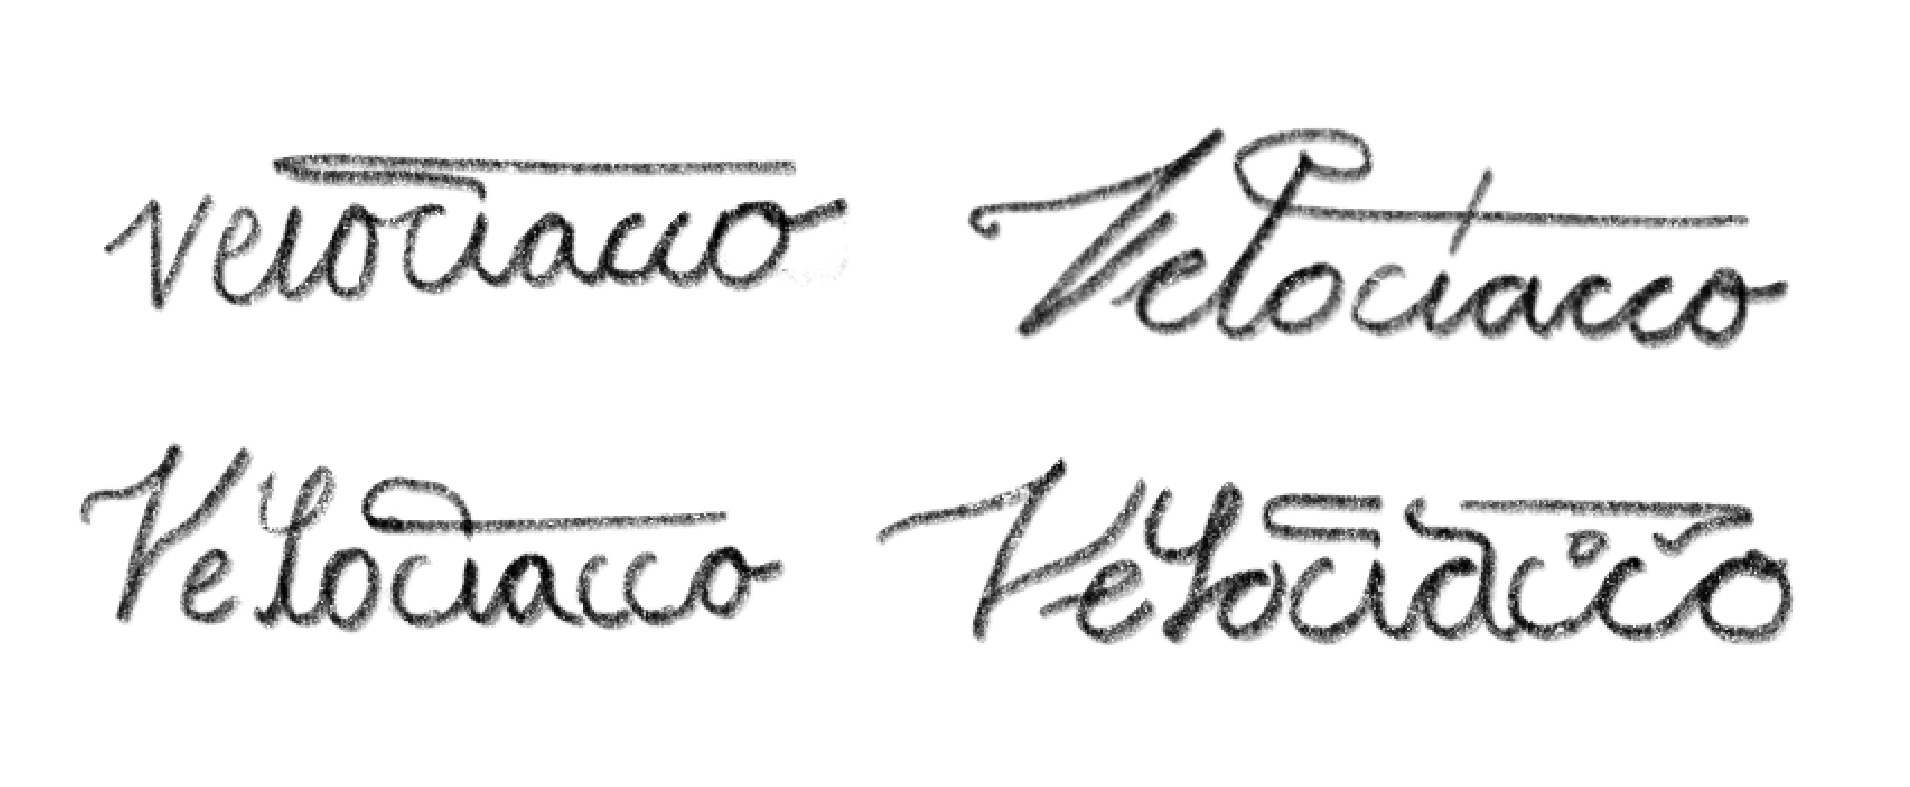 velociacco Velociacco
Velociacco Velociacco